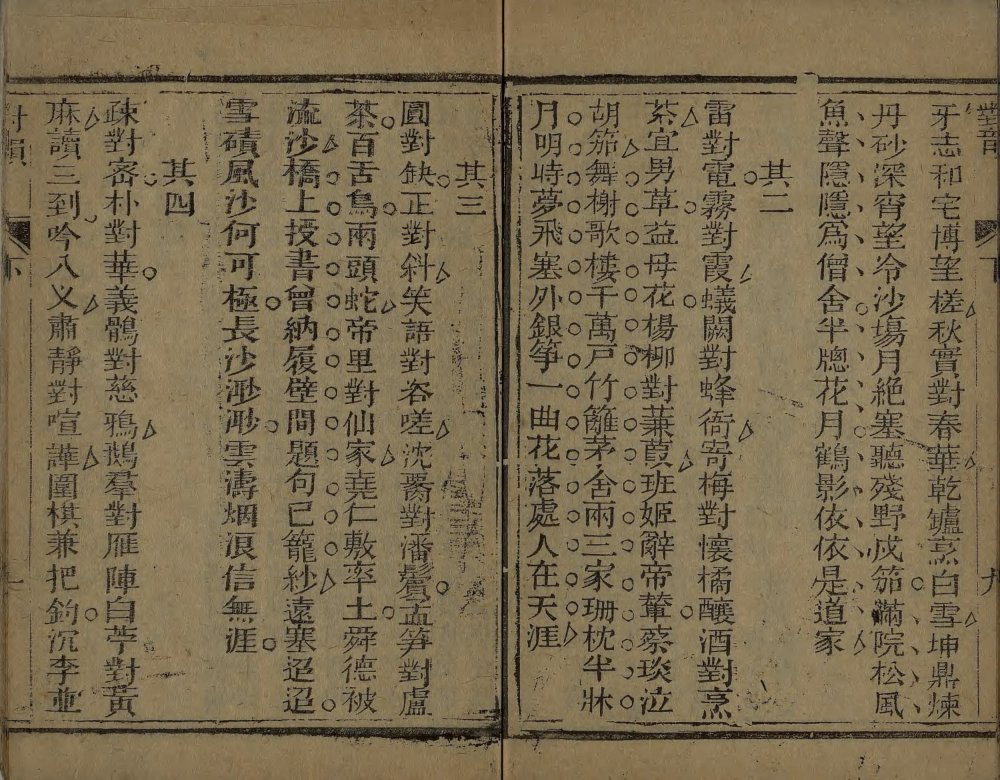 牙志和宅博望槎秋實對春華乾罏烹白雪坤鼎煉
丹砂深宵望冷沙塲月絕塞聽殘野戍笳滿院松風
魚聲隱隱為僧舍半牕花月鶴影依依是道家
其二
雷對電霧對霞蟻闕對蜂衙寄梅對懷橘釀酒對烹
茶宜男草益母花楊柳對蒹葭班姬辭帝輦蔡琰泣
胡笳舞榭歌樓千萬戶竹籬茅舍兩三家珊枕半牀
月明時夢飛塞外銀箏一曲花落處人在天涯
其三
圓對缺正對斜笑語對咨嗟沈腰對潘鬢孟笋對盧
茶百舌鳥兩頭蛇帝里對仙家堯仁敷率土舜德被
流沙橋上授書曾納履壁間題句已籠紗遠塞迢迢
雪磧風沙何可極長沙渺渺雲濤烟浪信無涯
其四
疎對密朴對華義鶻對慈鴉鵝羣對雁陣白苧對黃
麻讀三到吟八乂肅靜對喧譁圍棋兼把釣沉李並
對韻
下
下
九